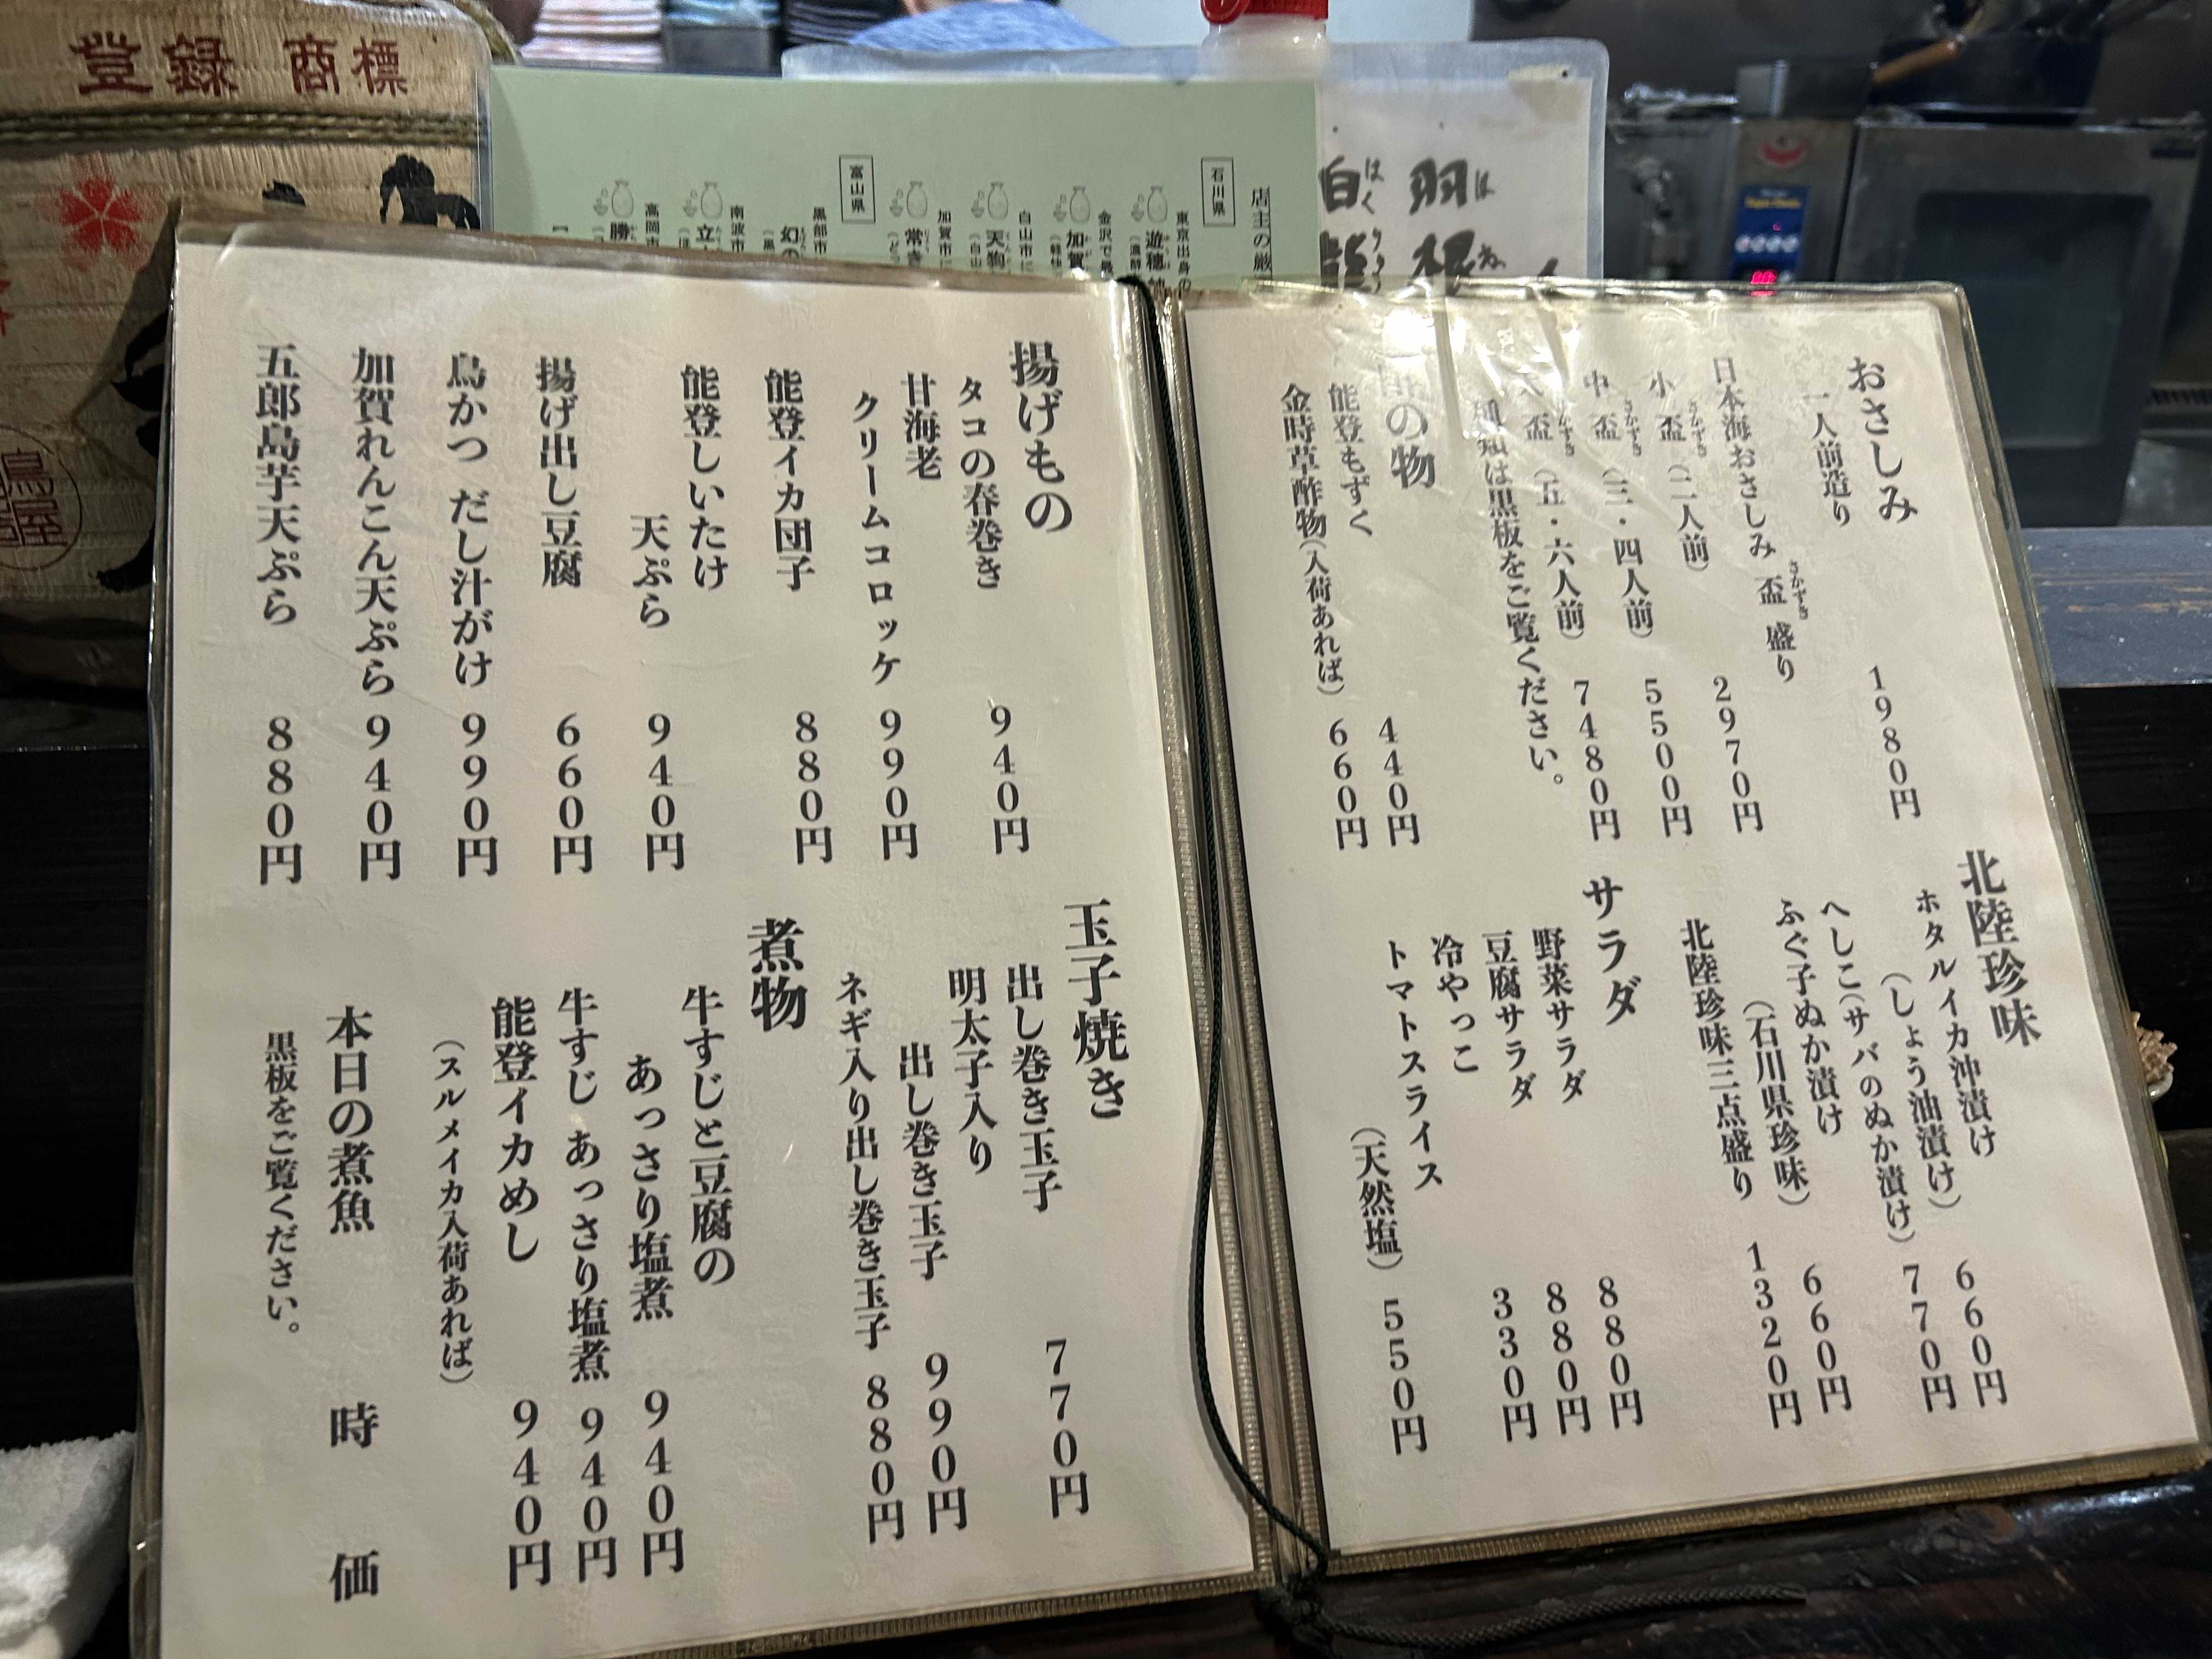 登録 商標
鳥屋
石川県
富山県
店主の厳
東京出身の
遊穂
金沢で最
加賀
白山市に
天狗
加賀市に
常き
黒部市
幻の
南波市
立
高岡市
勝
羽根
はね
白龍
おさしみ
一人前造り 1980円
日本海おさしみ 盃盛り
さかずき
小盃(二人前) 2970円
さかずき
中盃(三・四人前) 5500円
さかずき
盃(五・六人前) 7480円
さかずき
は黒板をご覧ください。
の物
能登もずく 440円
金時草酢物(入荷あれば) 660円
北陸珍味
ホタルイカ沖漬け
(しょう油漬け) 660円
へしこ(サバのぬか漬け) 770円
ふぐ子ぬか漬け
(石川県珍味) 660円
北陸珍味三点盛り 1320円
サラダ
野菜サラダ 880円
豆腐サラダ 880円
冷やっこ 330円
トマトスライス
(天然塩) 550円
揚げもの
タコの春巻き 940円
甘海老
クリームコロッケ 990円
能登イカ団子 880円
能登しいたけ
天ぷら 940円
揚げ出し豆腐 660円
鳥かつ だし汁がけ 990円
加賀れんこん天ぷら 940円
五郎島芋天ぷら 880円
玉子焼き
出し巻き玉子 770円
明太子入り
出し巻き玉子 990円
ネギ入り出し巻き玉子 880円
煮物
牛すじと豆腐の
あっさり塩煮 940円
牛すじ あっさり塩煮 940円
能登イカめし 940円
(スルメイカ入荷あれば)
本日の煮魚 時価
黒板をご覧ください。